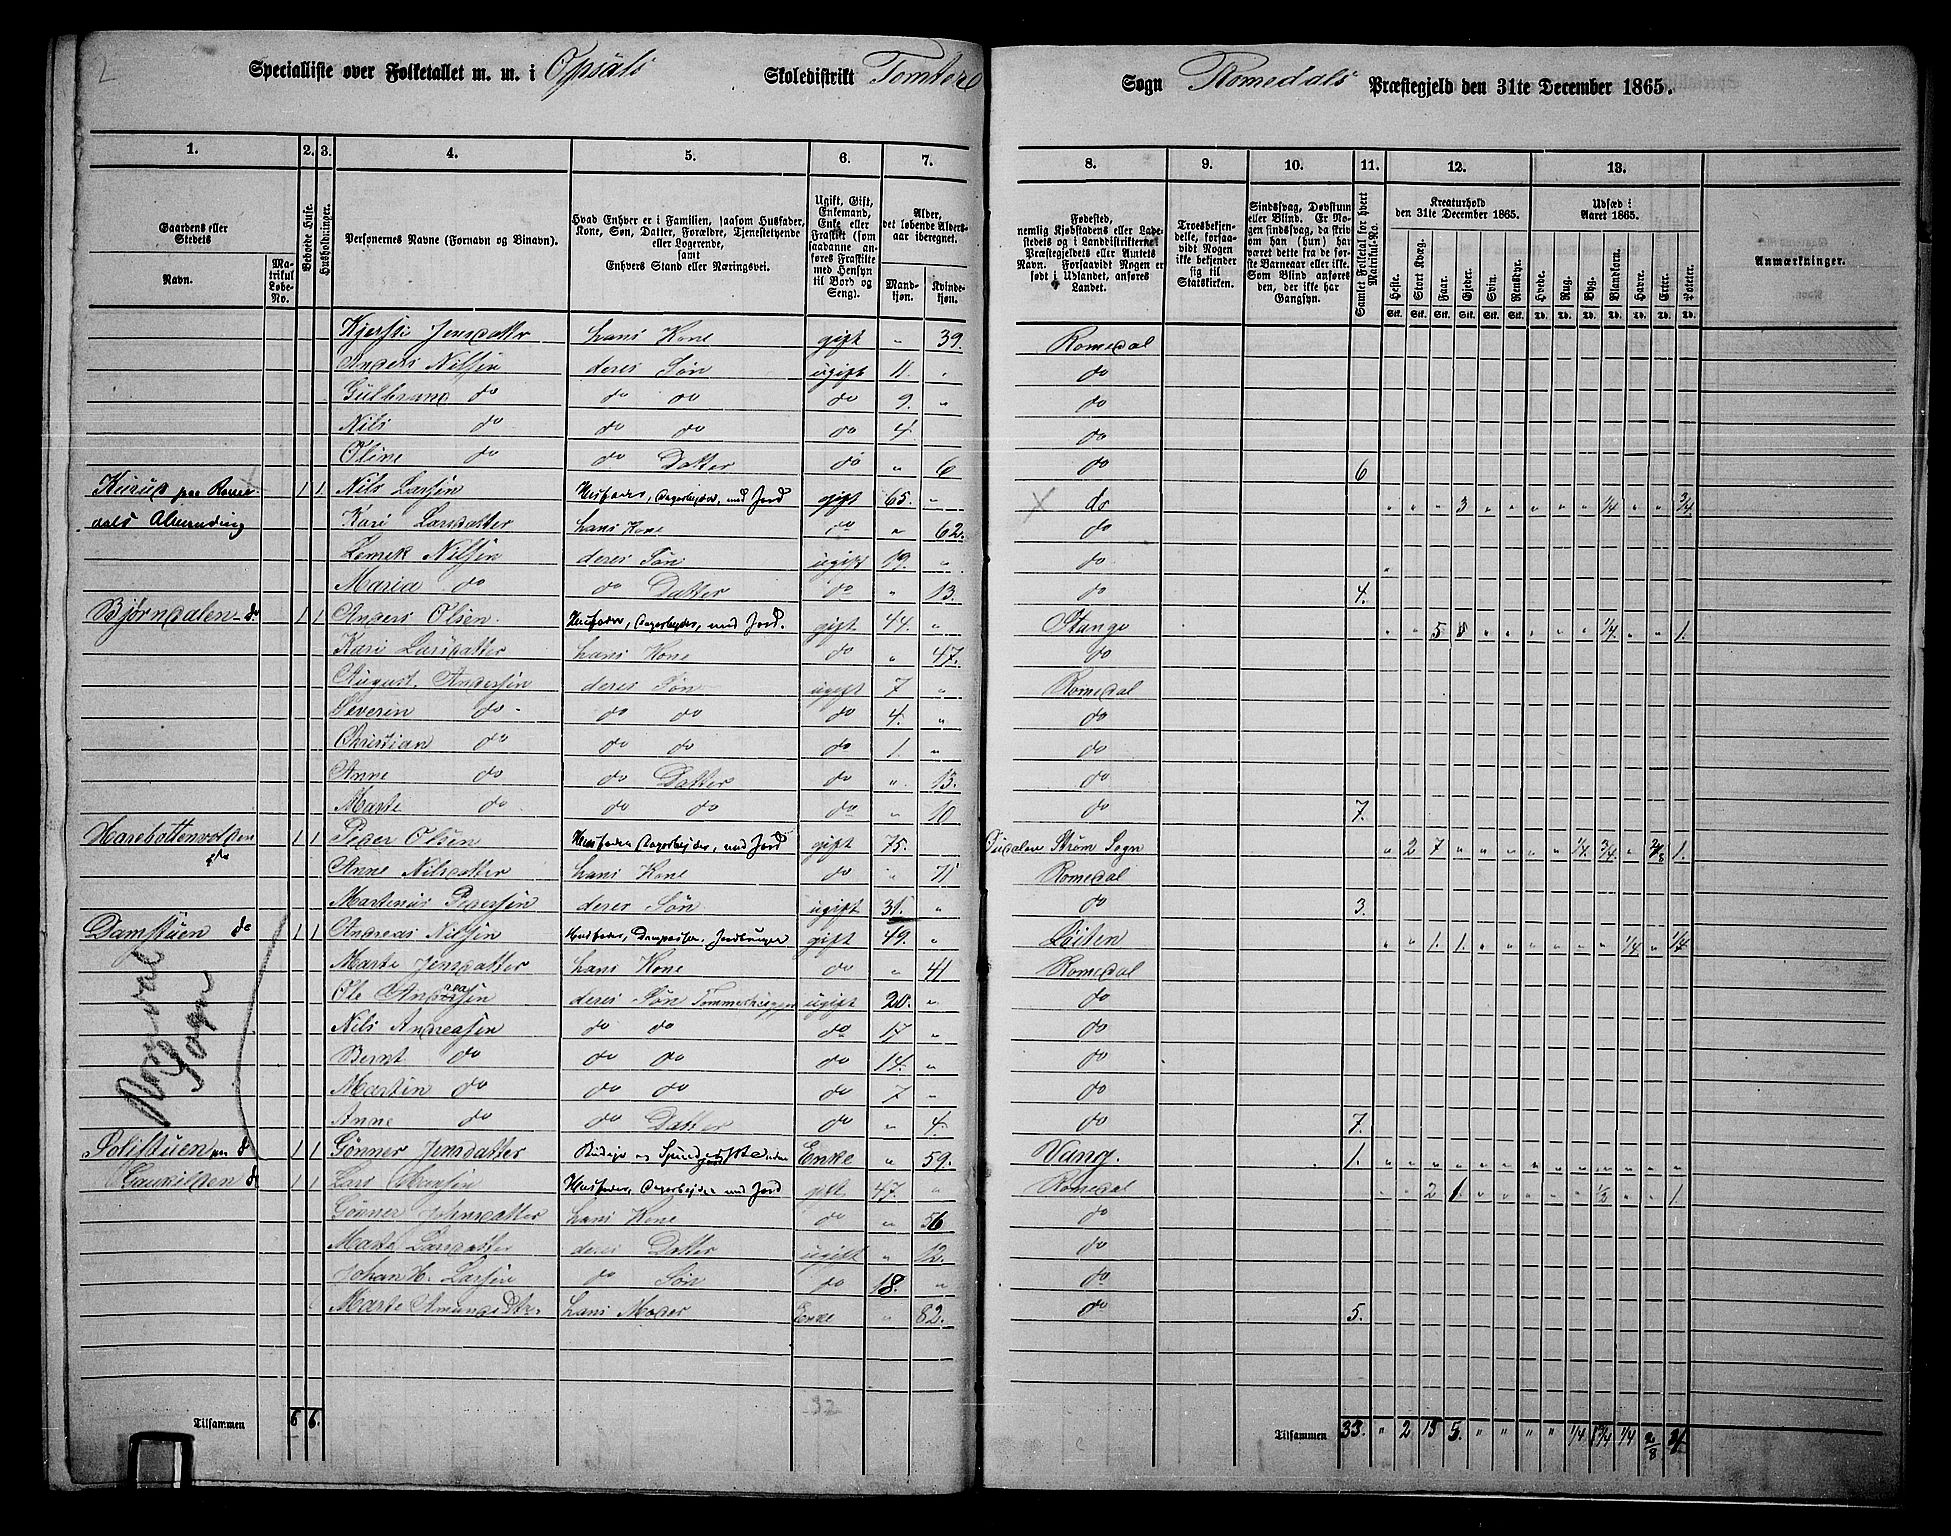 2
Specialliste over Folketallet m. m. i Opsáls Skoledistrikt Tomter Sogn Romedals Præstegjeld den 31te December 1865.
1. 2. 3. 4. 5. 6. 7. 8. 9. 10. 11. 12. 13.
Gaardens eller Stedets
Navn.
Matrikul Løbe-No.
Beboede Huse.
Husholdninger.
Personernes Navne (Fornavn og Binavn).
Hvad Enhver er i Familien, saasom Husfader, Kone, Søn, Datter, Forældre, Tjenestetyende eller Logerende, samt Enhvers Stand eller Næringsvei.
Ugift, Gift, Enkemand, Enke eller Fraskilt (som saadanne anføres Fraskilte med Hensyn til Bord og Seng).
Alder, det løbende Aldersaar iberegnet.
Mandkjøn.
Kvindekjøn.
Fødested, nemlig Kjøbstadens eller Ladestedets og i Landdistrikterne Præstegjeldets eller Amtets Navn. Forsaavidt Nogen er født i Udlandet, anføres Landet.
Troesbekjendelse, forsaavidt Nogen ikke bekjender sig til Statskirken.
Sindssvag, Døvstum eller Blind. Er Nogen sindssvag, da skrives om han (hun) har været dette fra de første Barneaar eller ikke. Som Blind anføres den, der ikke har Gangsyn.
Samlet Folketal for hvert Matrikul-No.
Kreaturhold den 31te December 1865.
Heste. Stort Kvæg. Faar. Gjeder. Svin. Rensdyr.
Stk. Stk. Stk. Stk. Stk. Stk.
Udsæd i Aaret 1865.
Hvede. Rug. Byg. Blandkorn. Havre. Erter. Poteter.
Td. Td. Td. Td. Td. Td. Td.
Anmærkninger.
Kjersti Jensdatter hans Kone gift " 39. Romedal
Anders Nilsen deres Søn ugift 11. " do
Gulbrand do do do do 9. " do
Nils do do do do 4. " do
Oline do do Datter do " 6 do 6
1 1 Nils Larsen Husfader, Dagarbejder, med Jord gift 65. " do " " " 3 " " " " " 1/4 " " 3/4
dals Almending Kari Larsdatter hans Kone do " 62. do
Lemek Nilsen deres Søn ugift 19. " do
Maria do do Datter do " 13. do 4.
Bjørndalen do 1 1 Anders Olsen Husfader, Dagarbejder, med Jord. gift 44. " Stange " " 5 8 " " " " " 1/4 " " 1.
Kari Larsdatter hans Kone do " 47. do
August Andersen deres Søn ugift 7 " Romedal
Severin do do do do 4. " do
Christian do do do do 1. " do
Anne do do Datter do " 15. do
Marte do do do do " 10 do 7.
do 1 1 Peder Olsen Husfader Dagarbejder, med Jord gift 75. " Strøm Sogn " 2 7 " " " " " 1/4 3/4 " 2/8 1.
Anne Nilsdatter hans Kone do " 71 Romedal
Martinus Pedersen deres Søn ugift 31. " do 3.
Damstuen do 1 1 Andreas Nilsen Husfader, gift 49. " Løiten " " 1. 1. " " " " " " 1/4 " 1/4
Marte Jensdatter hans Kone do " 41 Romedal
Ole Andreasen deres Søn Tømmerhugger ugift 20. " do
Nils Andreasen do do do 17 " do
Bernt do do do do 14. " do
Martin do do do do 7 " do
Anne do do Datter do " 4. do 7.
Sogn
Solistuen do 1 1 Gønner Jensdatter Enke " 59. Vang. 1. " " " " " " " " " " " " "
do 1 1 Lars Husfader, Dagarbejder med Jord gift 47. " Romedal " " 2 1. " " " " 1/2 " " 1.
Gønner Johnsdatter hans Kone do " 56 do
Marte Larsdatter deres Datter ugift " 12. do
Johan H. Larsen do Søn do 18. " do
Marte Amundsdtr. hans Moder Enke " 82. do 5.
32
Tilsammen 6 6.
Tilsammen 33. " 2 15 5. " " " " 1/4 1 3/4 1/4 2/8 4.